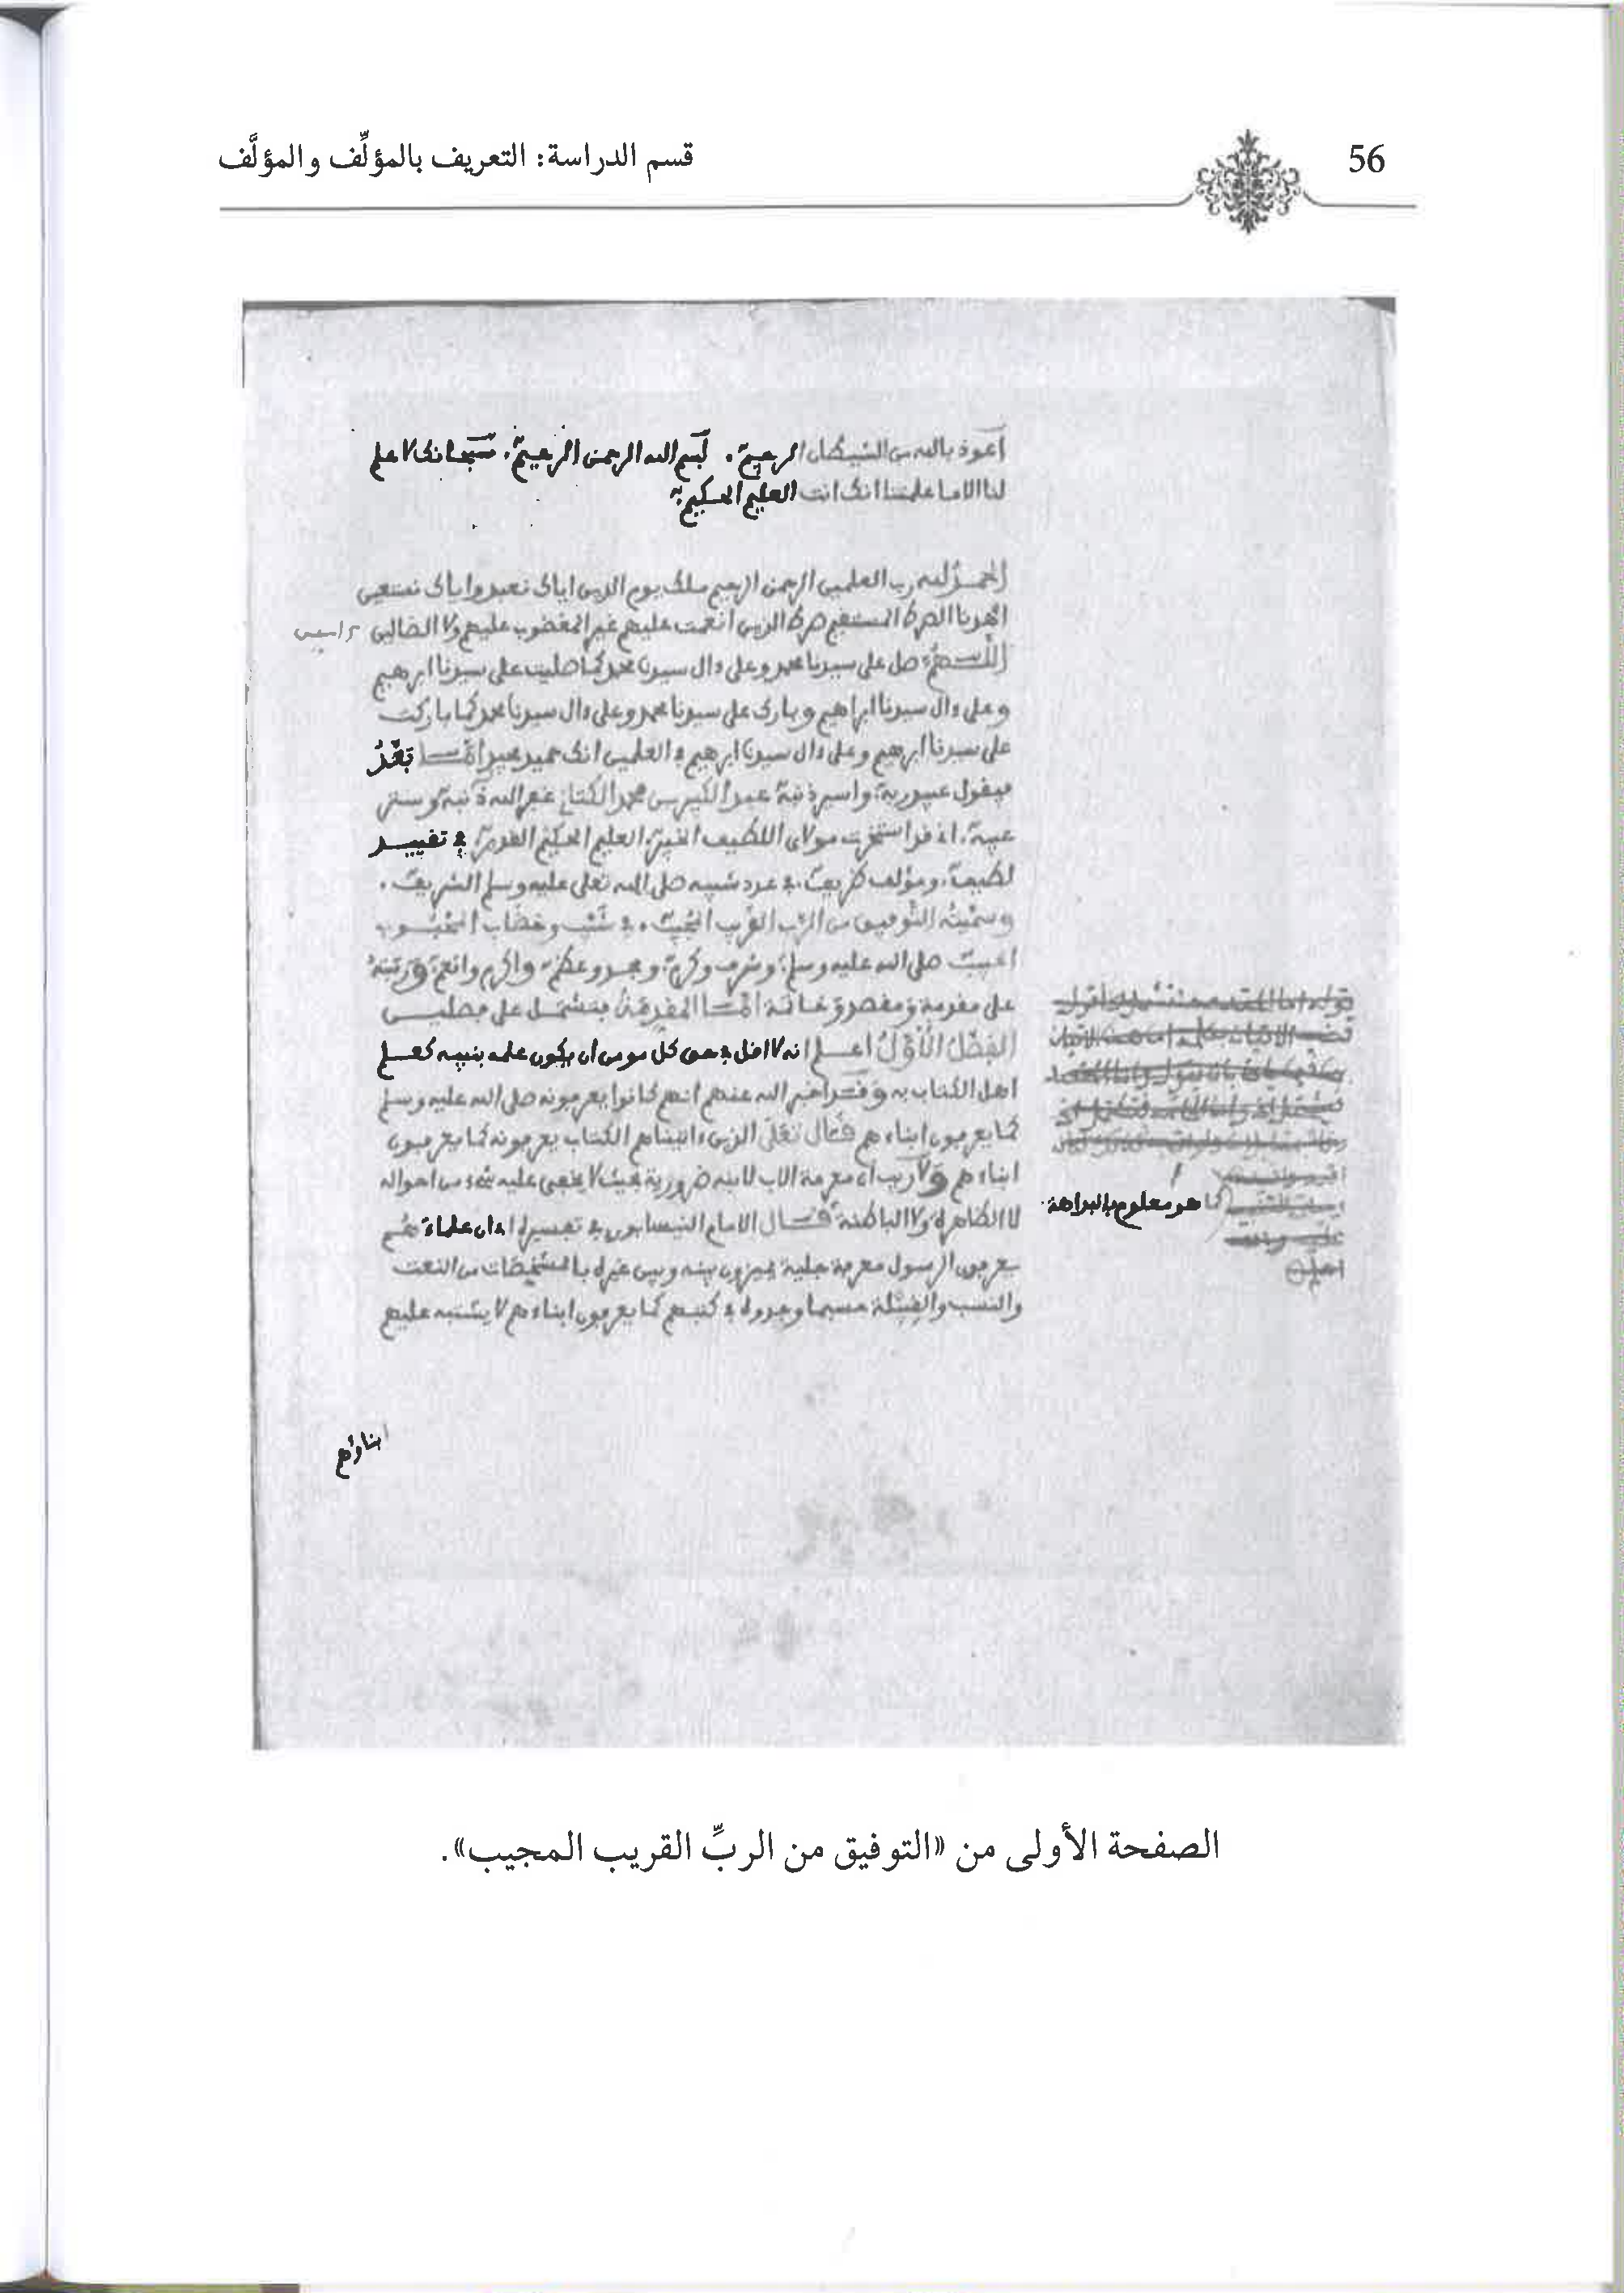 56
قسم الدراسة: التعريف بالمؤلِّف والمؤلَّف
اعوذ بالله من الشيطان الرجيم. بسم الله الرحمن الرحيم. سبحانك لا علم
لنا الا ما علمتنا انك انت العليم الحكيم
الحمد لله رب العلمين الرحمن الرحيم ملك يوم الدين اياك نعبد واياك نستعين
اهدنا الصراط المستقيم صراط الذين انعمت عليهم غير المغضوب عليهم ولا الضالين
اللهم صل على سيدنا محمد وعلى ءال سيدنا محمد كما صليت على سيدنا ابرهيم
وعلى ءال سيدنا ابراهيم وبارك على سيدنا محمد وعلى ءال سيدنا محمد كما باركت
على سيدنا ابرهيم وعلى ءال سيدنا ابرهيم في العلمين انك حميد مجيد اما بعد
فيقول عبد ربه واسير ذنبه عبد الكبير بن محمد الكتاني غفر الله ذنبه وستر
عيبه. اني قد استخرت مولاي اللطيف الخبير العليم الحكيم القدير. في تقييد
لطيف. ومؤلف ظريف. في عدد شيبه صلى الله تعلى عليه وسلم الشريف.
وسميته التوفيق من الرب القريب المجيب. في شيب وخضاب المحبوب
الحبيب صلى الله عليه وسلم وشرف وكرم ومجد وعظم واكرم وانعم ورتبته
على مقدمة ومقصد وخاتمة اما المقدمة فتشتمل على فصلين
الفصل الاول اعلم انه لا اقل في حق كل مومن ان يكون علمه بنبيه كعلم
اهل الكتاب به وقد اخبر الله عنهم انهم كانوا يعرفونه صلى الله عليه وسلم
كما يعرفون ابناءهم فقال تعلى الذين ءاتيناهم الكتاب يعرفونه كما يعرفون
ابناءهم ولا ريب ان معرفة الاب لابنه ضرورية بحيث لا يخفى عليه شيء من احواله
لا الظاهرة ولا الباطنة كما هو معلوم بالبداهة
قال الامام النيسابوري في تفسيره ان علماءهم
يعرفون الرسول معرفة جلية يميزون بينه وبين غيره بالمشخصات من النعت
والنسب والقبيلة حسبما وجدوه في كتبهم كما يعرفون ابناءهم لا يشتبه عليهم
ابناؤهم
الصفحة الأولى من «التوفيق من الربِّ القريب المجيب».